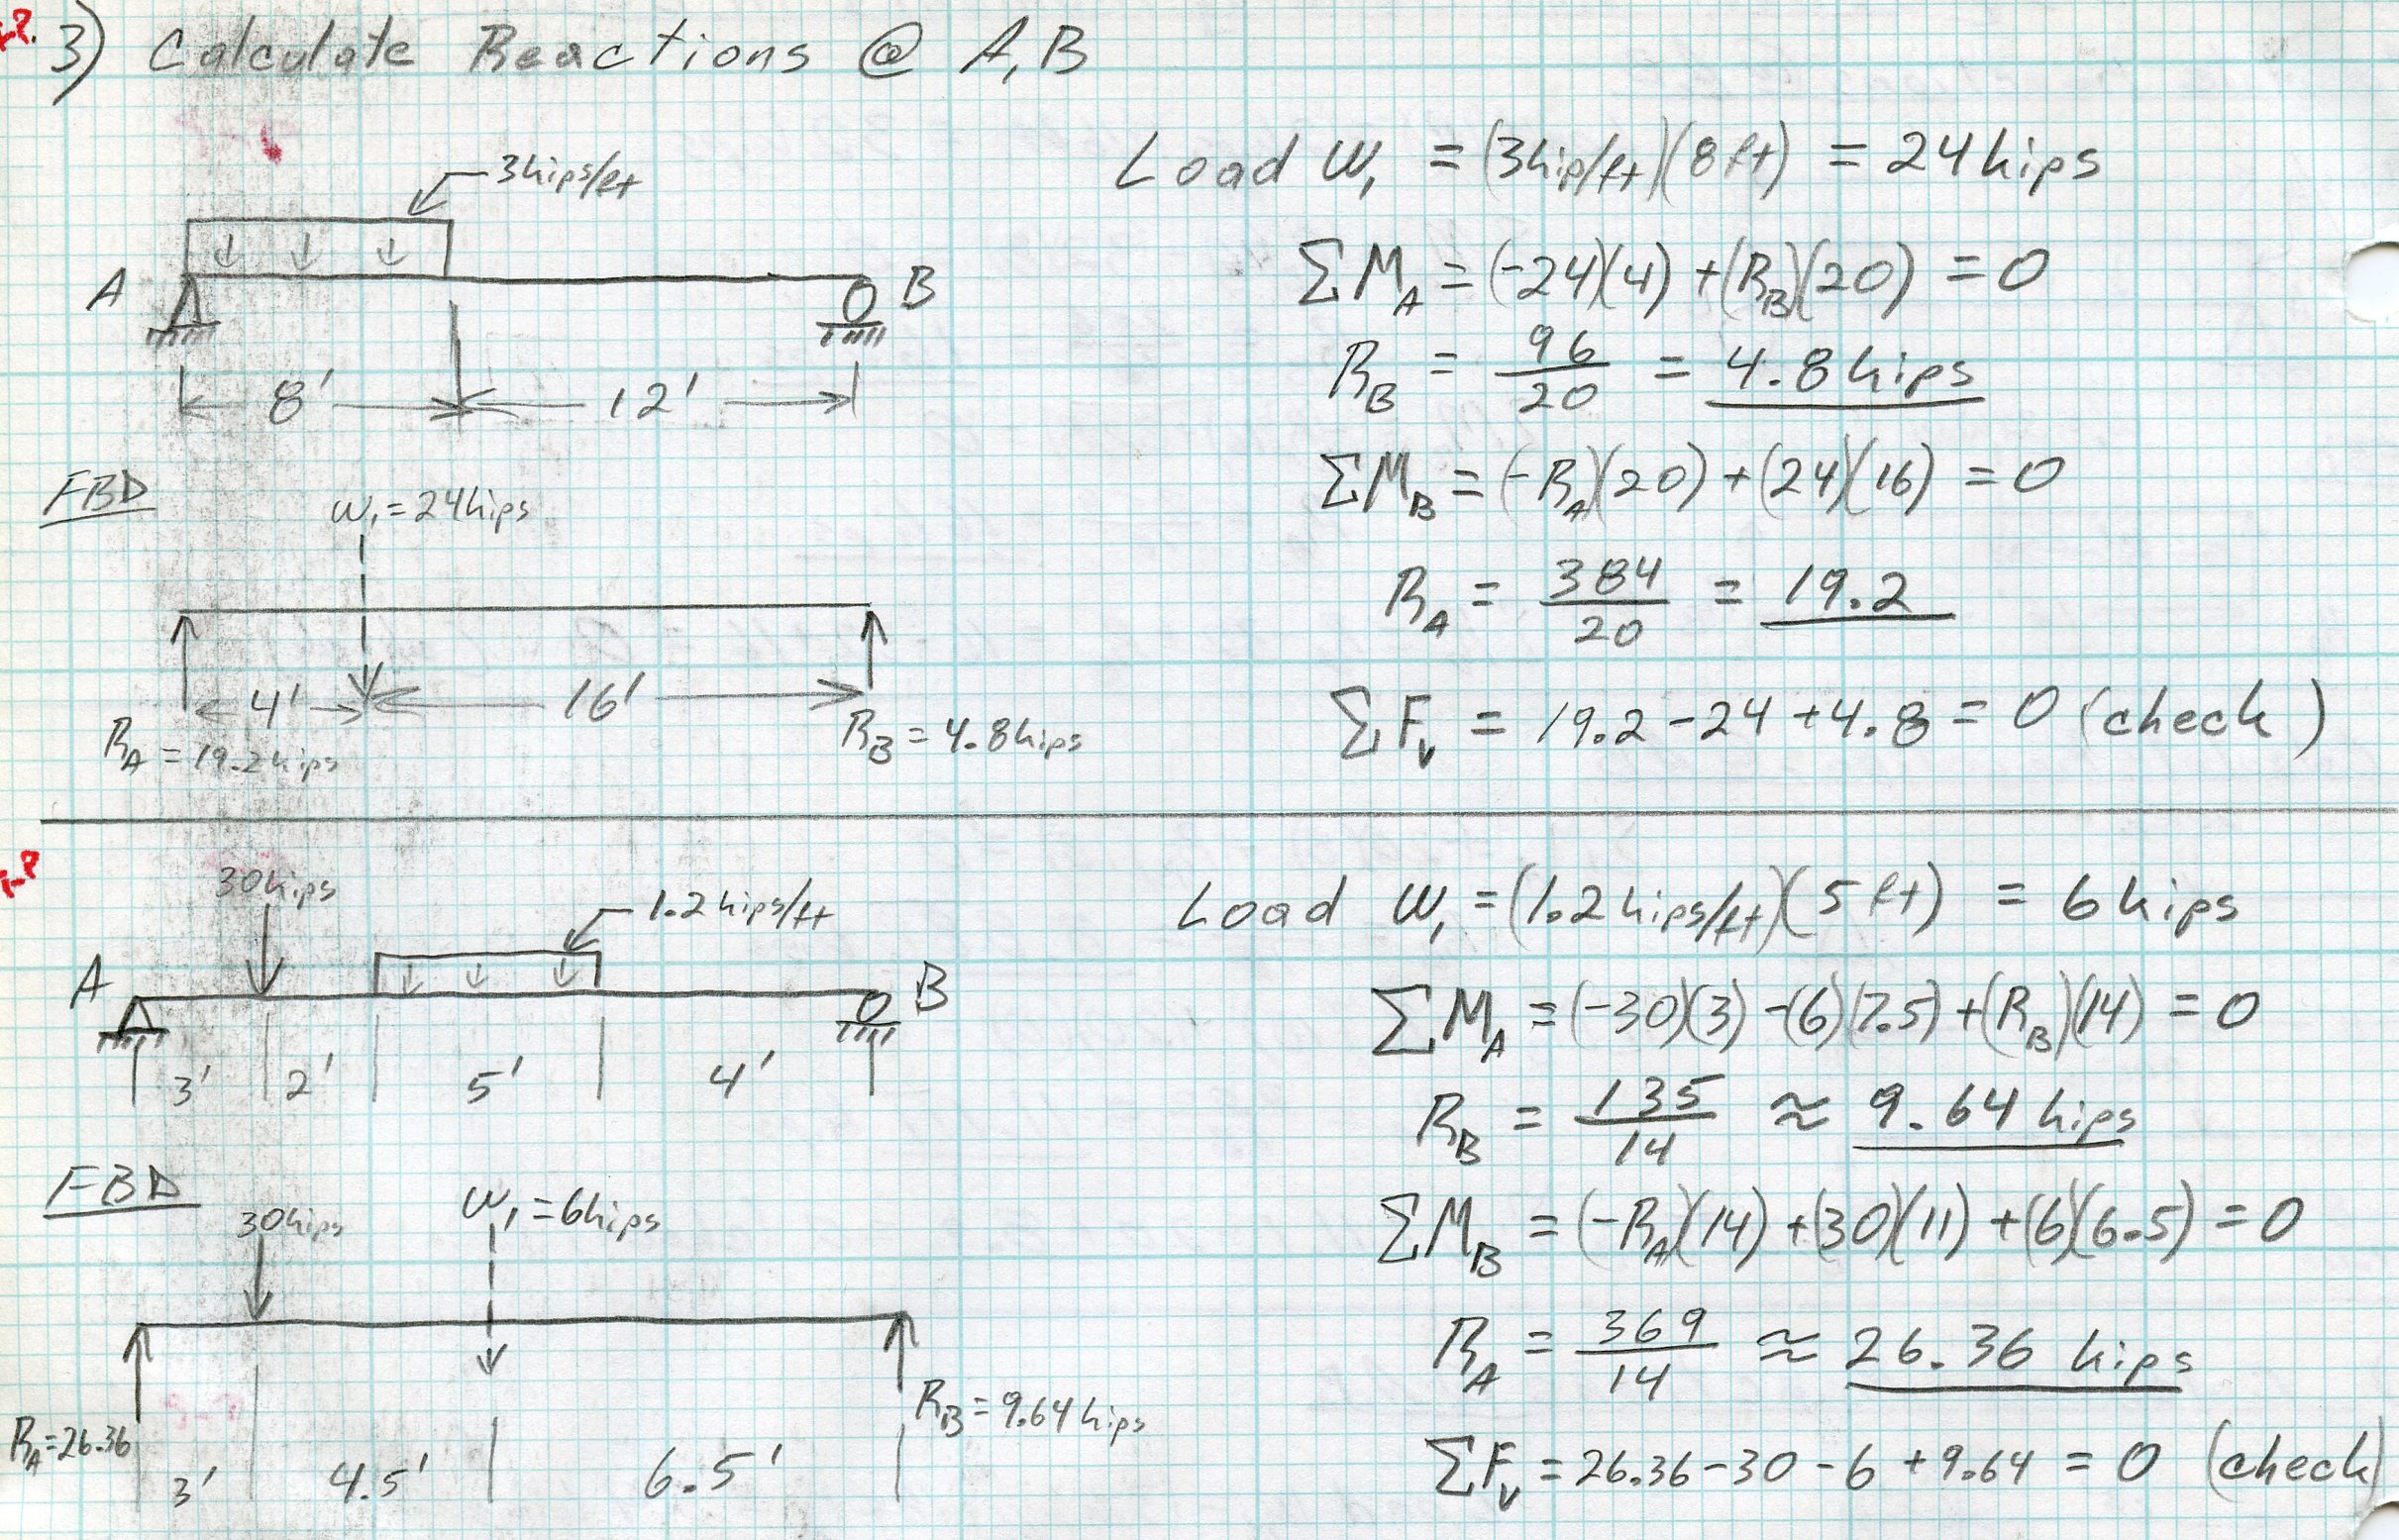 3) Calculate Reactions @ A,B
3kips/ft
A
B
8'
12'
FBD
W₁=24kips
4'
16'
R_A=19.2kips
R_B=4.8kips
Load W₁ = (3kip/ft)(8ft) = 24kips
ΣM_A = (-24)(4) + (R_B)(20) = 0
R_B = 96/20 = 4.8kips
ΣM_B = (-R_A)(20) + (24)(16) = 0
R_A = 384/20 = 19.2
ΣF_v = 19.2 - 24 + 4.8 = 0 (check)
30kips
1.2kips/ft
A
B
3'
2'
5'
4'
FBD
30kips
W₁=6kips
R_A=26.36
R_B=9.64kips
3'
4.5'
6.5'
Load W₁ = (1.2kips/ft)(5ft) = 6kips
ΣM_A = (-30)(3) - (6)(7.5) + (R_B)(14) = 0
R_B = 135/14 ≈ 9.64 kips
ΣM_B = (-R_A)(14) + (30)(11) + (6)(6.5) = 0
R_A = 369/14 ≈ 26.36 kips
ΣF_v = 26.36 - 30 - 6 + 9.64 = 0 (check)